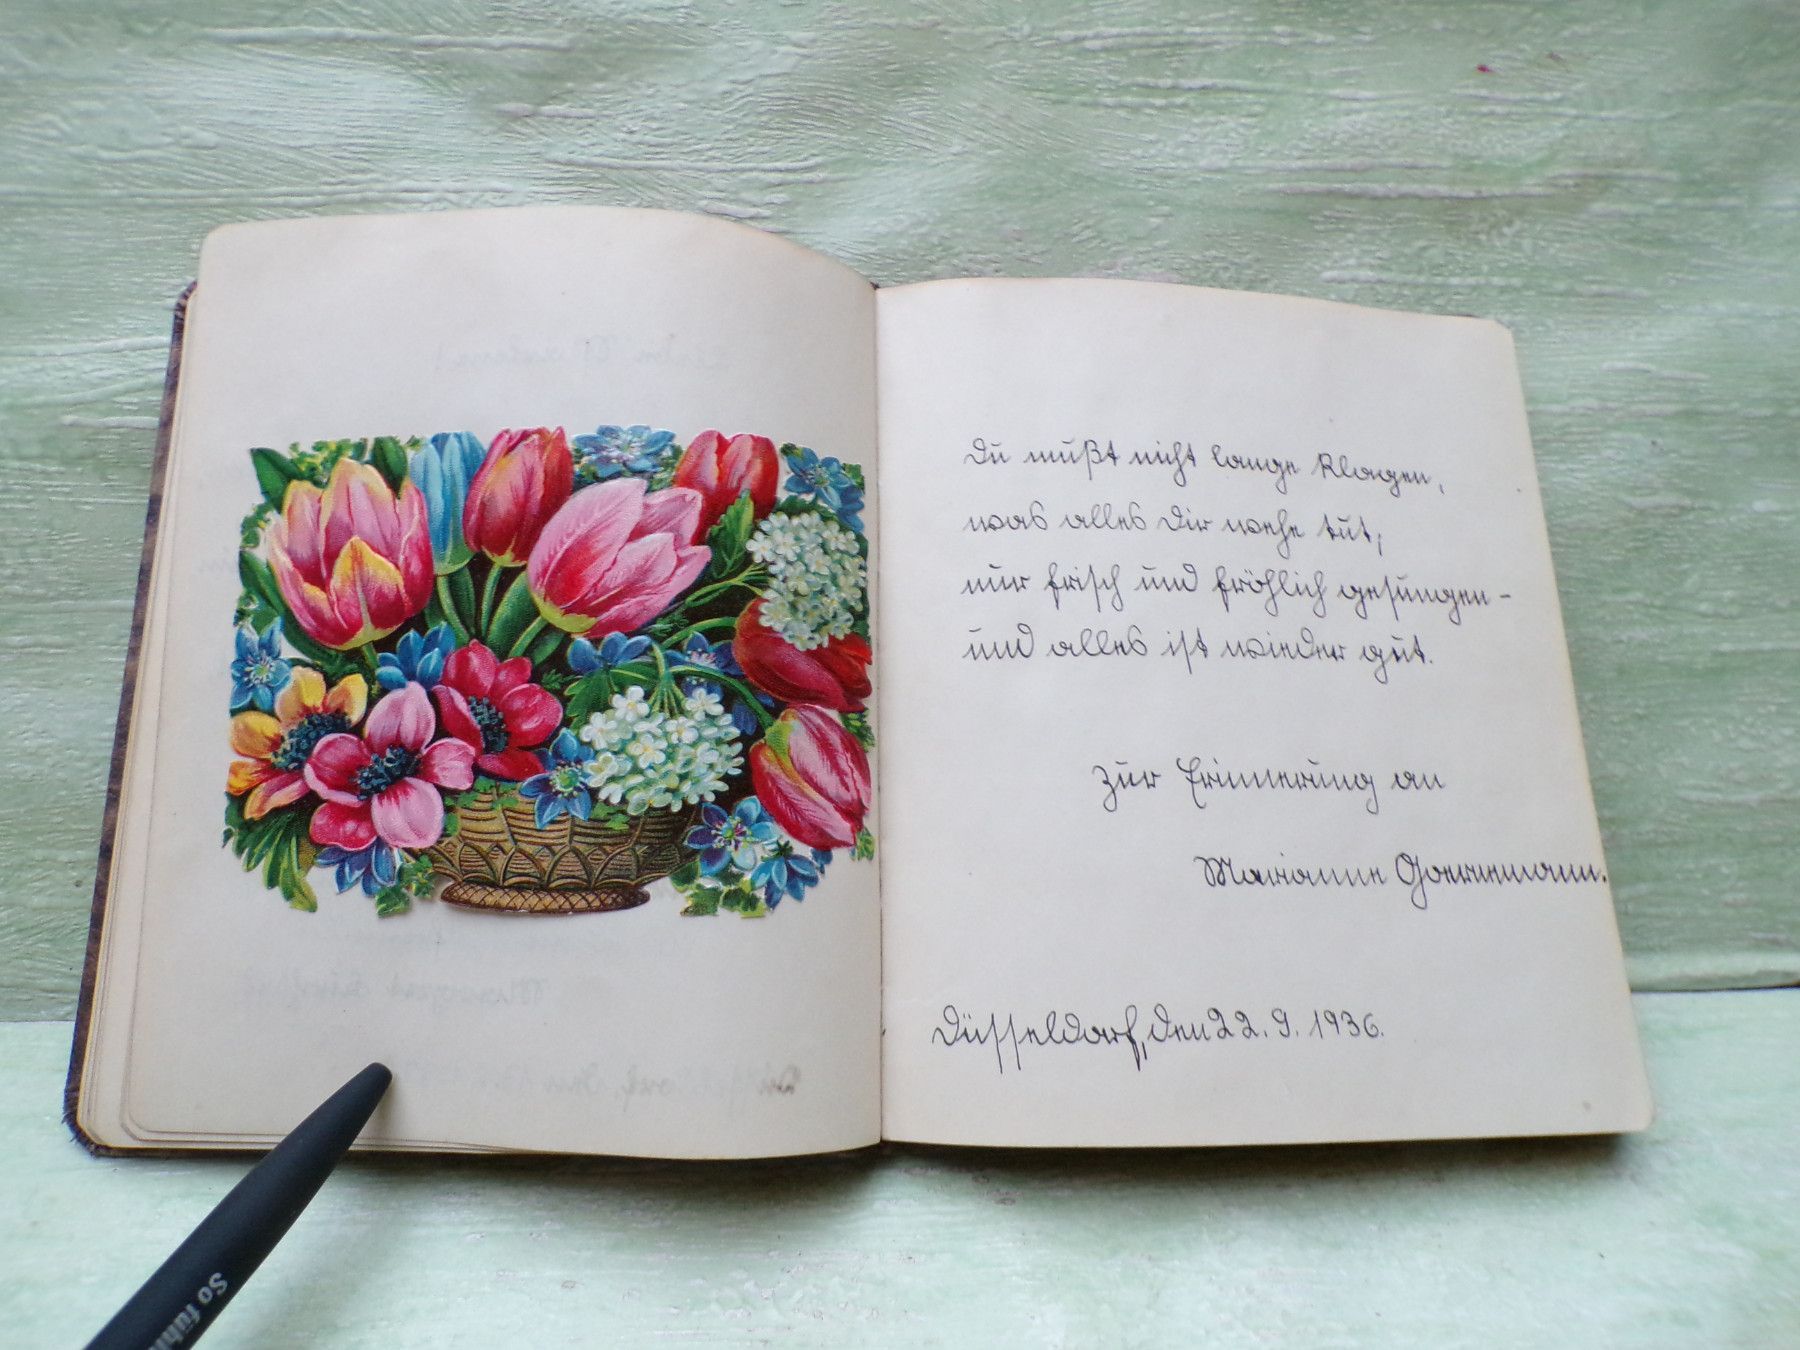 Du mußt nicht lange klagen,
was alles Dir wehe tut,
nur frisch und fröhlich gesungen -
und alles ist wieder gut.
Zur Erinnerung an
Marianne
Düsseldorf, den 22. 9. 1936.
So fühl